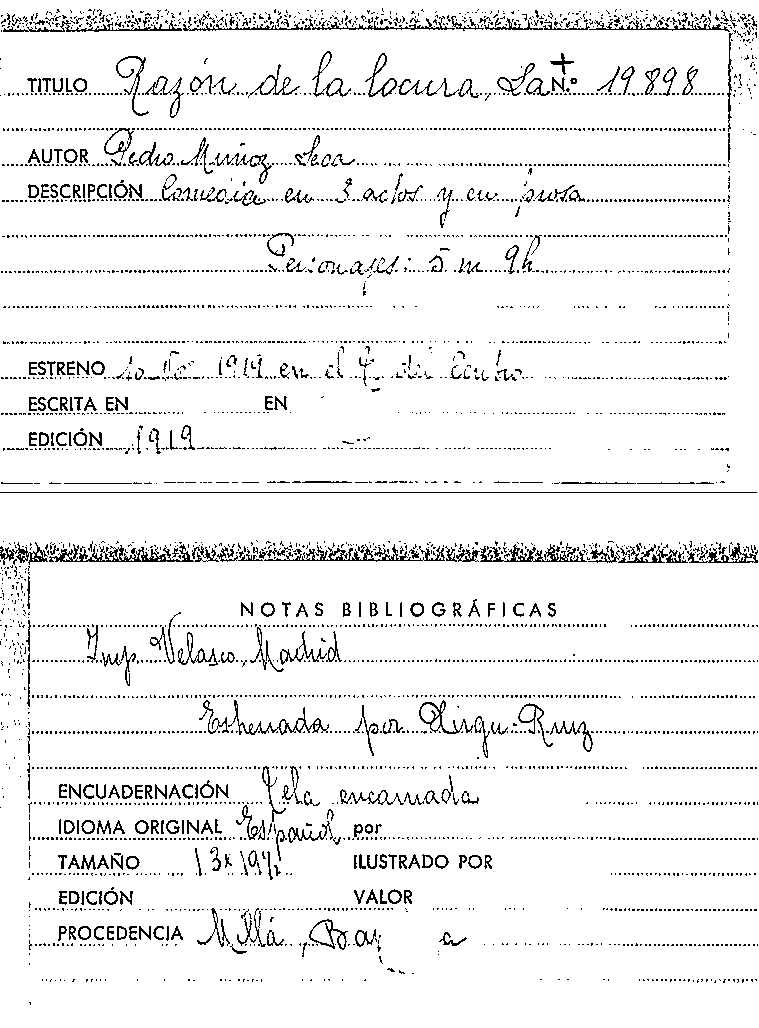 TITULO Razón de la locura, La N.º 19898
AUTOR Pedro Muñoz Seca
DESCRIPCIÓN Comedia en 3 actos y en prosa
Personajes: 5 m 9h
ESTRENO 1919 en el T. del Centro
ESCRITA EN EN
EDICIÓN 1919
NOTAS BIBLIOGRÁFICAS
Imp. Velasco, Madrid
Estrenada por Xirgu-Ruiz
ENCUADERNACIÓN Tela encarnada
IDIOMA ORIGINAL Español por
TAMAÑO ILUSTRADO POR
EDICIÓN VALOR
PROCEDENCIA Millá,